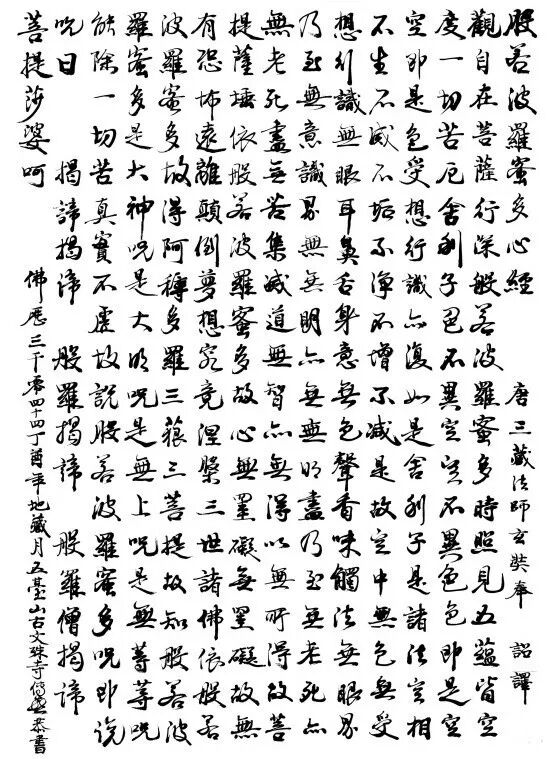 般若波羅蜜多心經 唐三藏法師玄奘奉 詔譯
觀自在菩薩行深般若波羅蜜多時照見五蘊皆空
度一切苦厄舍利子色不異空空不異色色即是空
空即是色受想行識亦復如是舍利子是諸法空相
不生不滅不垢不淨不增不減是故空中無色無受
想行識無眼耳鼻舌身意無色聲香味觸法無眼界
乃至無意識界無無明亦無無明盡乃至無老死亦
無老死盡無苦集滅道無智亦無得以無所得故菩
提薩埵依般若波羅蜜多故心無罣礙無罣礙故無
有恐怖遠離顛倒夢想究竟涅槃三世諸佛依般若
波羅蜜多故得阿耨多羅三藐三菩提故知般若波
羅蜜多是大神咒是大明咒是無上咒是無等等咒
能除一切苦真實不虛故說般若波羅蜜多咒即說
咒曰 揭諦揭諦 般羅揭諦 般羅僧揭諦
菩提莎婆呵 佛歷三千零四十四丁酉年地藏月五臺山古文殊寺傳恭書